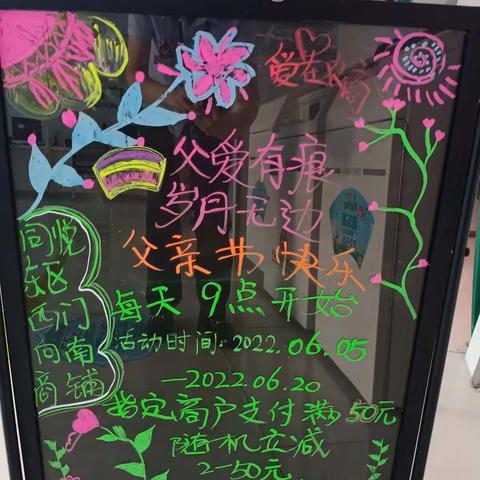 爱在
父爱有痕
岁月无边
父亲节快乐
同悦
东区
西门
向南
商铺
每天9点开始
活动时间:2022.06.05
—2022.06.20
指定商户支付满50元
随机立减
2-50元